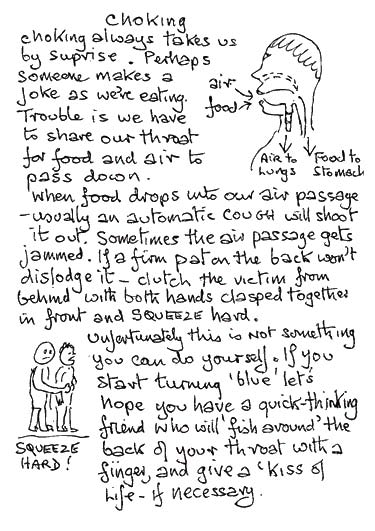 choking
choking always takes us
by suprise. Perhaps
someone makes a
joke as we're eating.
Trouble is we have
to share our throat
for food and air to
pass down.
air
food
Air to
lungs
Food to
Stomach
When food drops into our air passage
-usually an automatic COUGH will shoot
it out. Sometimes the air passage gets
jammed. If a firm pat on the back won't
dislodge it - clutch the victim from
behind with both hands clasped together
in front and SQUEEZE hard.
Unfortunately this is NOT something
you can do yourself. If you
start turning 'blue' let's
hope you have a quick-thinking
friend who will 'fish around' the
back of your throat with a
finger, and give a 'Kiss of
Life - if necessary.
SQUEEZE
HARD!